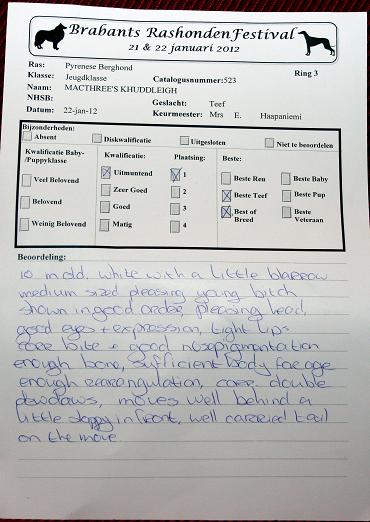 Brabants RashondenFestival
21 & 22 januari 2012
Ras: Pyrenese Berghond
Ring 3
Klasse: Jeugdklasse Catalogusnummer: 523
Naam: MACTHREE'S KHUDDLEIGH
NHSB: Geslacht: Teef
Datum: 22-jan-12 Keurmeester: Mrs E. Haapaniemi
Bijzonderheden:
Absent Diskwalificatie Uitgesloten Niet te beoordelen
Kwalificatie Baby-/Puppyklasse Kwalificatie: Plaatsing: Beste:
Uitmuntend 1
Veel Belovend Zeer Goed 2 Beste Reu Beste Baby
Belovend Goed 3 Beste Teef Beste Pup
Weinig Belovend Matig 4 Best of Breed Beste Veteraan
Beoordeling:
10 m old, white with a little blarrow
medium sized pleasing young bitch
shown in good order, pleasing head,
good eyes + expression, tight lips
corr bite + good nosepigmentation
enough bone, sufficient body for age
enough angulation, corr. double
dewclaws, moves well behind a
little sloppy in front, well carried tail
on the move